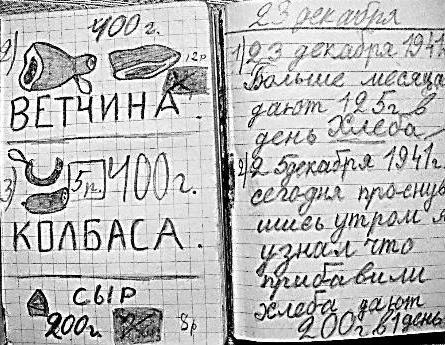 400 г.
2)
12р
ВЕТЧИНА.
3)
5р.
400г.
КОЛБАСА.
СЫР
200г.
8р
23 декабря
1) 23 декабря 1941
Больше месяца
дают 125г в
день хлеба
2) 25декабря 1941г.
сегодня проснув
шись утром я
узнал что
прибавили
хлеба дают
200г. в 1 день